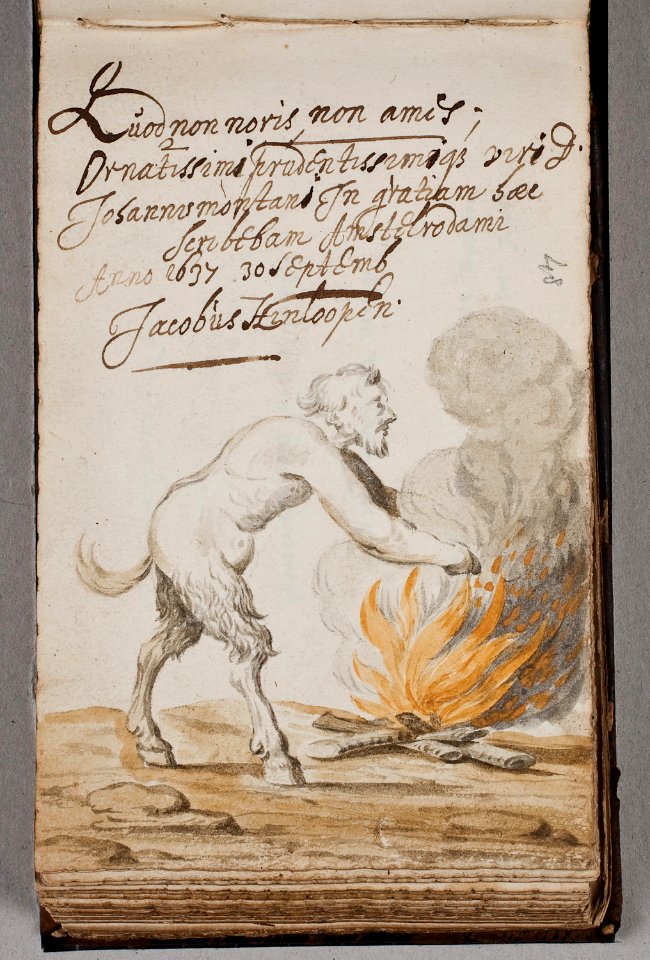 Quod non noris, non ames;
Ornatissimi prudentissimiq3 viri D.
Johannis montani In gratiam hæc
scribebam Amstelrodami
Anno 1637 30 septemb
Jacobus Hinloopen.